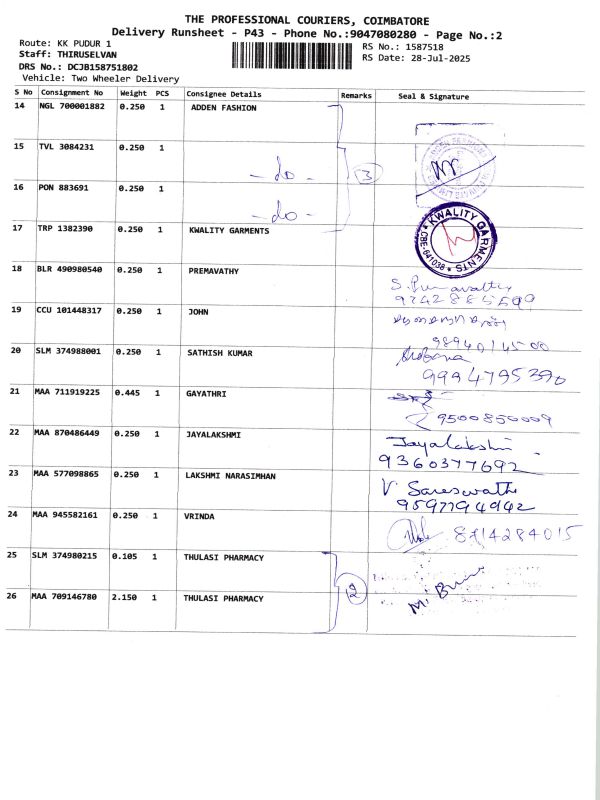 THE PROFESSIONAL COURIERS, COIMBATORE
Delivery Runsheet - P43 - Phone No.:9047080280 - Page No.:2
Route: KK PUDUR 1
RS No.: 1587518
Staff: THIRUSELVAN
RS Date: 28-Jul-2025
DRS No.: DCJB158751802
Vehicle: Two Wheeler Delivery
S No Consignment No Weight PCS Consignee Details Remarks Seal & Signature
14 NGL 700001882 0.250 1 ADDEN FASHION
15 TVL 3084231 0.250 1 - do -
3
16 PON 883691 0.250 1 - do -
17 TRP 1382390 0.250 1 KWALITY GARMENTS
KWALITY GARMENTS
CBE-641038
18 BLR 490980540 0.250 1 PREMAVATHY
19 CCU 101448317 0.250 1 JOHN
20 SLM 374988001 0.250 1 SATHISH KUMAR
9994795390
21 MAA 711919225 0.445 1 GAYATHRI
9500850009
22 MAA 870486449 0.250 1 JAYALAKSHMI
Jayalakshmi
9360377692
23 MAA 577098865 0.250 1 LAKSHMI NARASIMHAN
V. Saraswathi
24 MAA 945582161 0.250 1 VRINDA
25 SLM 374980215 0.105 1 THULASI PHARMACY
2
26 MAA 709146780 2.150 1 THULASI PHARMACY